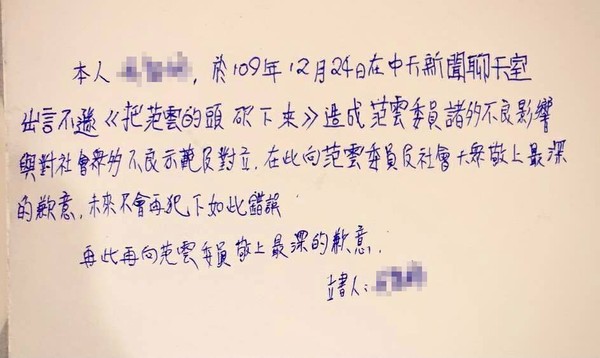 本人，於109年12月24日在中天新聞聊天室
出言不遜《把范雲的頭砍下來》造成范雲委員諸多不良影響
與對社會眾多不良示範及對立，在此向范雲委員及社會大眾敬上最深
的歉意，未來不會再犯下如此錯誤
再此再向范雲委員敬上最深的歉意．
立書人：